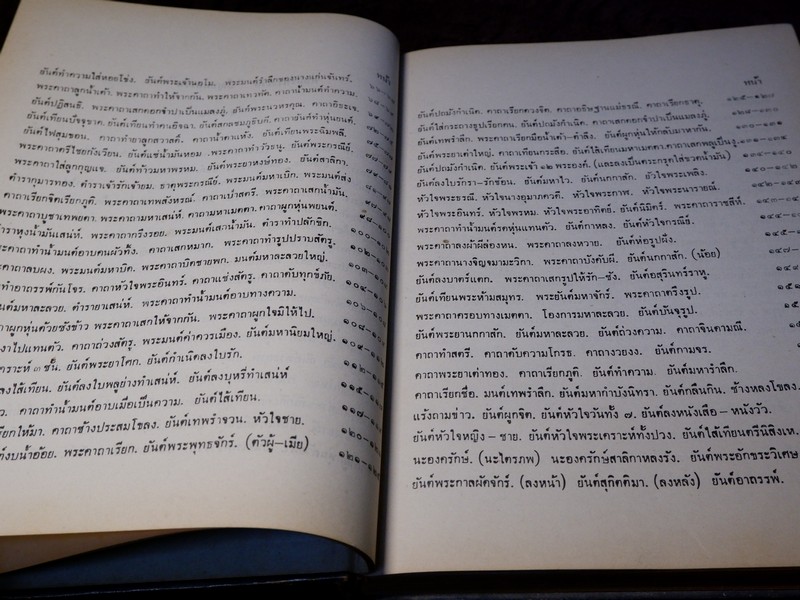 หน้า
ยันต์ค้าความใส่หอยโข่ง. ยันต์พระเจ้านะโม. พระมนต์รำลึกของนางแก่นจันทร์.
พระคาถาลูกน้ำเต้า. พระคาถาทำให้จากกัน. พระคาถาเทวพัด. คาถาน้ำมนต์ทำความ.
ยันต์ปฏิสนธิ. พระคาถาเสกดอกจำปาเป็นแมลงภู่. ยันต์พระนวหรคุณ.
ยันต์เทียนปัจจุขาด.
ยันต์ไฟสุมขอน. คาถาทำยาลูกสวาสดิ์. คาถาน้ำตาแห้ง. ยันต์เทียนพระฉิมพลี.
พระคาถาตรีไชยกังเวียน. ยันต์แช่น้ำมันหอม พระคาถาทำวัวธนู. ยันต์พระกรณีย์.
พระคาถาใส่ลูกกุญแจ. ยันต์ท้าวมหาพรหม. ยันต์พระยาหงษ์ทอง. ยันต์สาลิกา.
ตำรากุมารทอง. ตำราเจ้ารักเจ้ายม. ธาตุพระกรณีย์. พระมนต์มหาเบิก. พระมนต์ส่ง
คาถาเรียกจิตเรียกภูติ. พระคาถาเทพสังหรณ์. คาถาเป่าสตรี. พระคาถาเสกน้ำมัน.
พระคาถาบูชาเทพยดา. คาถามหาเสน่ห์. คาถามหาเมตตา. คาถาผูกหุ่นพยนต์.
ราหุงน้ำมันเสน่ห์. พระคาถากรึงรอย. พระมนต์เสกน้ำมัน. ตำราทำปลัดขิก. ๑๐๐-๑๐๑
ะคาถาทำน้ำมนต์อาบคนผัวทิ้ง. คาถาเสกหมาก. พระคาถาทำรูปปราบศัตรู.
าถาลบผง. พระมนต์มหาบิด. พระคาถาบิดชายพก. มนต์มหาละลวยใหญ่.
ทำอาถรรพ์กันโจร. คาถาหัวใจพระอินทร์. คาถาแช่งสัตรู. คาถาดับทุกข์ภัย.
นต์มหาละลวย. ตำรายาเสน่ห์. พระคาถาทำน้ำมนต์อาบทางความ.
าผูกหุ่นด้วยซังข้าว พระคาถาเสกให้จากกัน. พระคาถาผูกใจมิให้ไป.
งาไปแทนตัว. คาถาถ่วงสัตรู. พระมนต์ค่าควรเมือง. ยันต์มหานิยมใหญ่.
คราะห์ ๓ ชั้น. ยันต์พระยาโศก. ยันต์กำเนิดลงใบรัก.
ลงไส้เทียน. ยันต์ลงใบพลูย่างทำเสน่ห์. ยันต์ลงบุหรี่ทำเสน่ห์
ว. คาถาทำน้ำมนต์อาบเมื่อเป็นความ. ยันต์ไส้เทียน.
รียกให้มา. คาถาช้างประสมโขลง. ยันต์เทพรำจวน. หัวใจชาย.
งบน้ำอ้อย. พระคาถาเรียก. ยันต์พระพุทธจักร์. (ตัวผู้-เมีย)
หน้า
ยันต์ปถมังกำเนิด. คาถาเรียกดวงจิต. คาถาอธิษฐานแม่ธรณี. คาถาเรียกธาตุ.
ยันต์ใส่กระถางธูปเรียกคน. ยันต์ปถมังกำเนิด. คาถาเสกดอกจำปาเป็นแมลงภู่.
ยันต์เทพรำลึก. พระคาถาเรียกมือน้ำเต้า-คำลิง. ยันต์ผูกหุ่นให้กลับมาหากัน. ๑๓๐-๑๓๑
ยันต์พระยาเต่าใหญ่. คาถาเทียนกระสือ. ยันต์ไส้เทียนมหาเมตตา.คาถาเสกพลูเป็นงู.
ยันต์ปถมังกำเนิด. ยันต์พระเจ้า ๑๒ พระองค์. (และลงเป็นตะกรุดใส่ขวดน้ำมัน)
ยันต์ลงใบรักา-รักซ้อน. ยันต์มหาไว. ยันต์นกกาสัก. ยัวใจพระเพลิง.
หัวใจพระธรณี. หัวใจนางอุมาภควดี. หัวใจพระกาฬ. หัวใจพระนารายณ์.
หัวใจพระอินทร์. หัวใจพรหม. หัวใจพระอาทิตย์. ยันต์นิมิตร์. พระคาถาราชสีห์.
พระคาถาทำน้ำมนต์รดหุ่นแทนตัว. ยันต์กาหลง. ยันต์หัวใจกรณีย์.
พระคาถาลงผ้าผีล่องหน. พระคาถาลงหวาย. ยันต์ห่อรูปฝัง.
พระคาถานางจิญจมามะวิกา. พระคาถาบังคับผี. ยันต์นกกาสัก. (น้อย)
ยันต์ลงบาตร์แตก. พระคาถาเสกรูปให้รัก-ชัง. ยันต์อสุรินทร์ราหู.
ยันต์เทียนพระห้ามสมุทร. พระยันต์มหาจักร์. พระคาถาตรึงรูป.
พระคาถาครอบทางเมตตา. โองการมหาละลวย. ยันต์บัญจุรูป.
ยันต์พระยานกกาสัก. ยันต์มหาละลวย. ยันต์ถ่วงความ. คาถาจินดามณี.
คาถาทำสตรี. คาถาดับความโกรธ. คาถางวยงง. ยันต์กามจร.
คาถาพระยาเต่าทอง. คาถาเรียกภูติ. ยันต์ทำความ. ยันต์มหารำลึก.
คาถาเรียกชื่อ. มนต์เทพรำลึก. ยันต์มหากำบังนิทรา. ยันต์กลืนกิน. ช้างหลงโขลง.
แร้งถามข่าว. ยันต์ผูกจิต. ยันต์หัวใจวันทั้ง ๗. ยันต์ลงหนังเสือ-หนังวัว.
ยันต์หัวใจหญิง-ชาย. ยันต์หัวใจพระเคราะห์ทั้งปวง. ยันต์ไส้เทียนตรีนิสิงเห.
นะองครักษ์. (นะไตรภพ) นะองครักษ์สาลิกาหลงรัง. ยันต์พระอักขระวิเศษ
ยันต์พระกาลผัดจักร์. (ลงหน้า) ยันต์สุกิตติมา. (ลงหลัง) ยันต์อาถรรพ์.